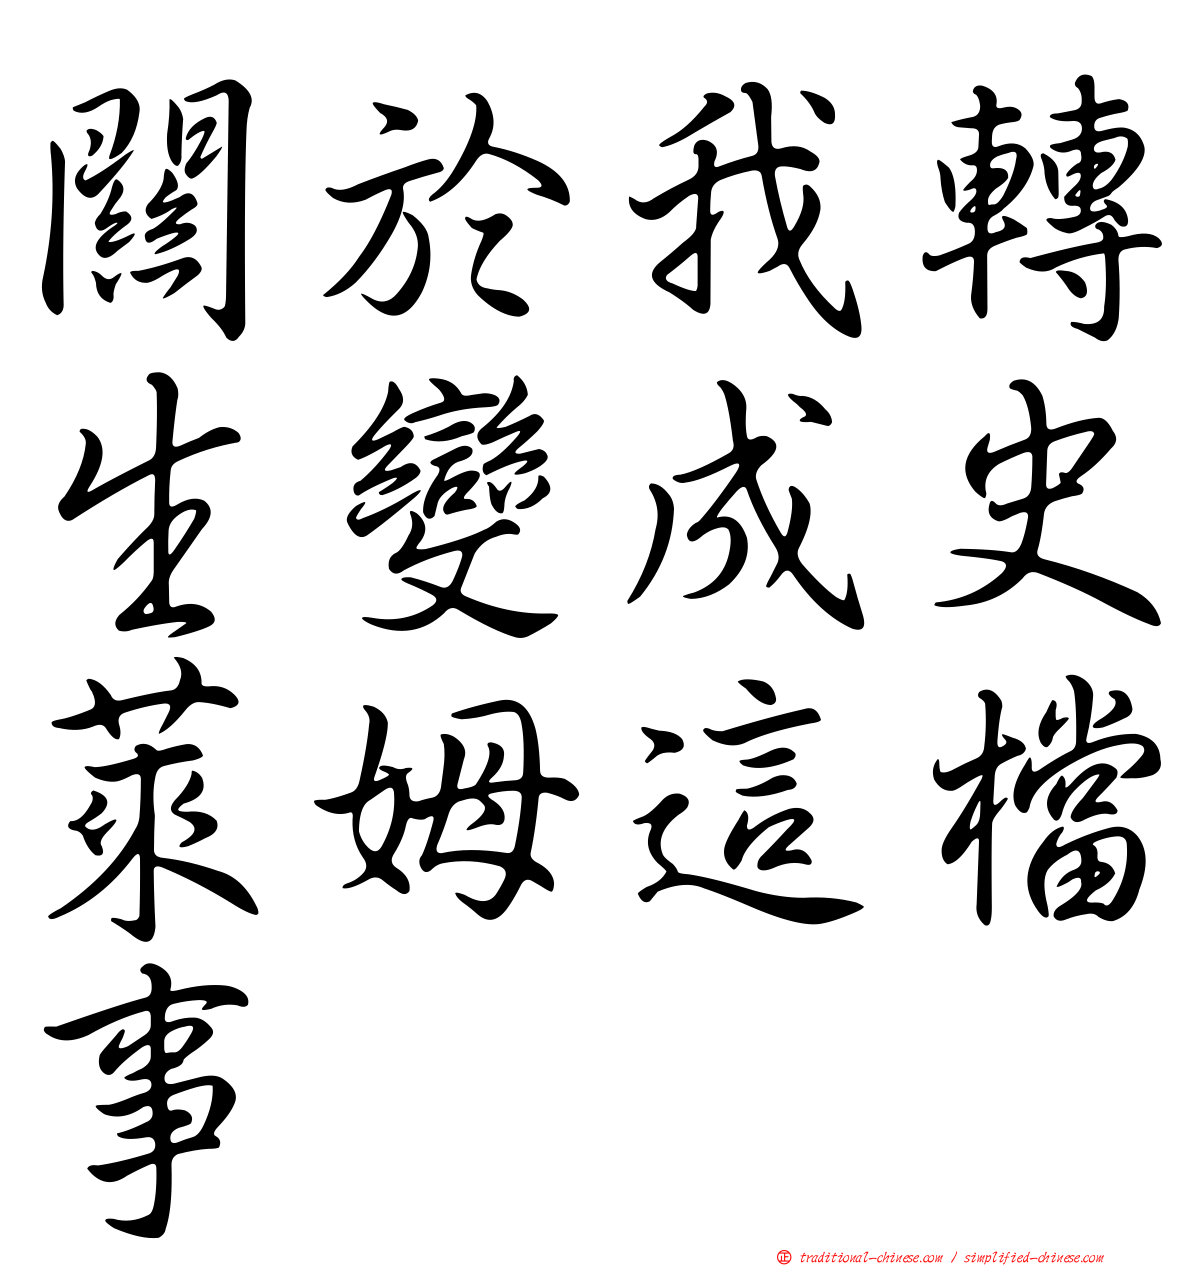 關於我轉
生變成史
萊姆這檔
事
正 traditional-chinese.com / simplified-chinese.com